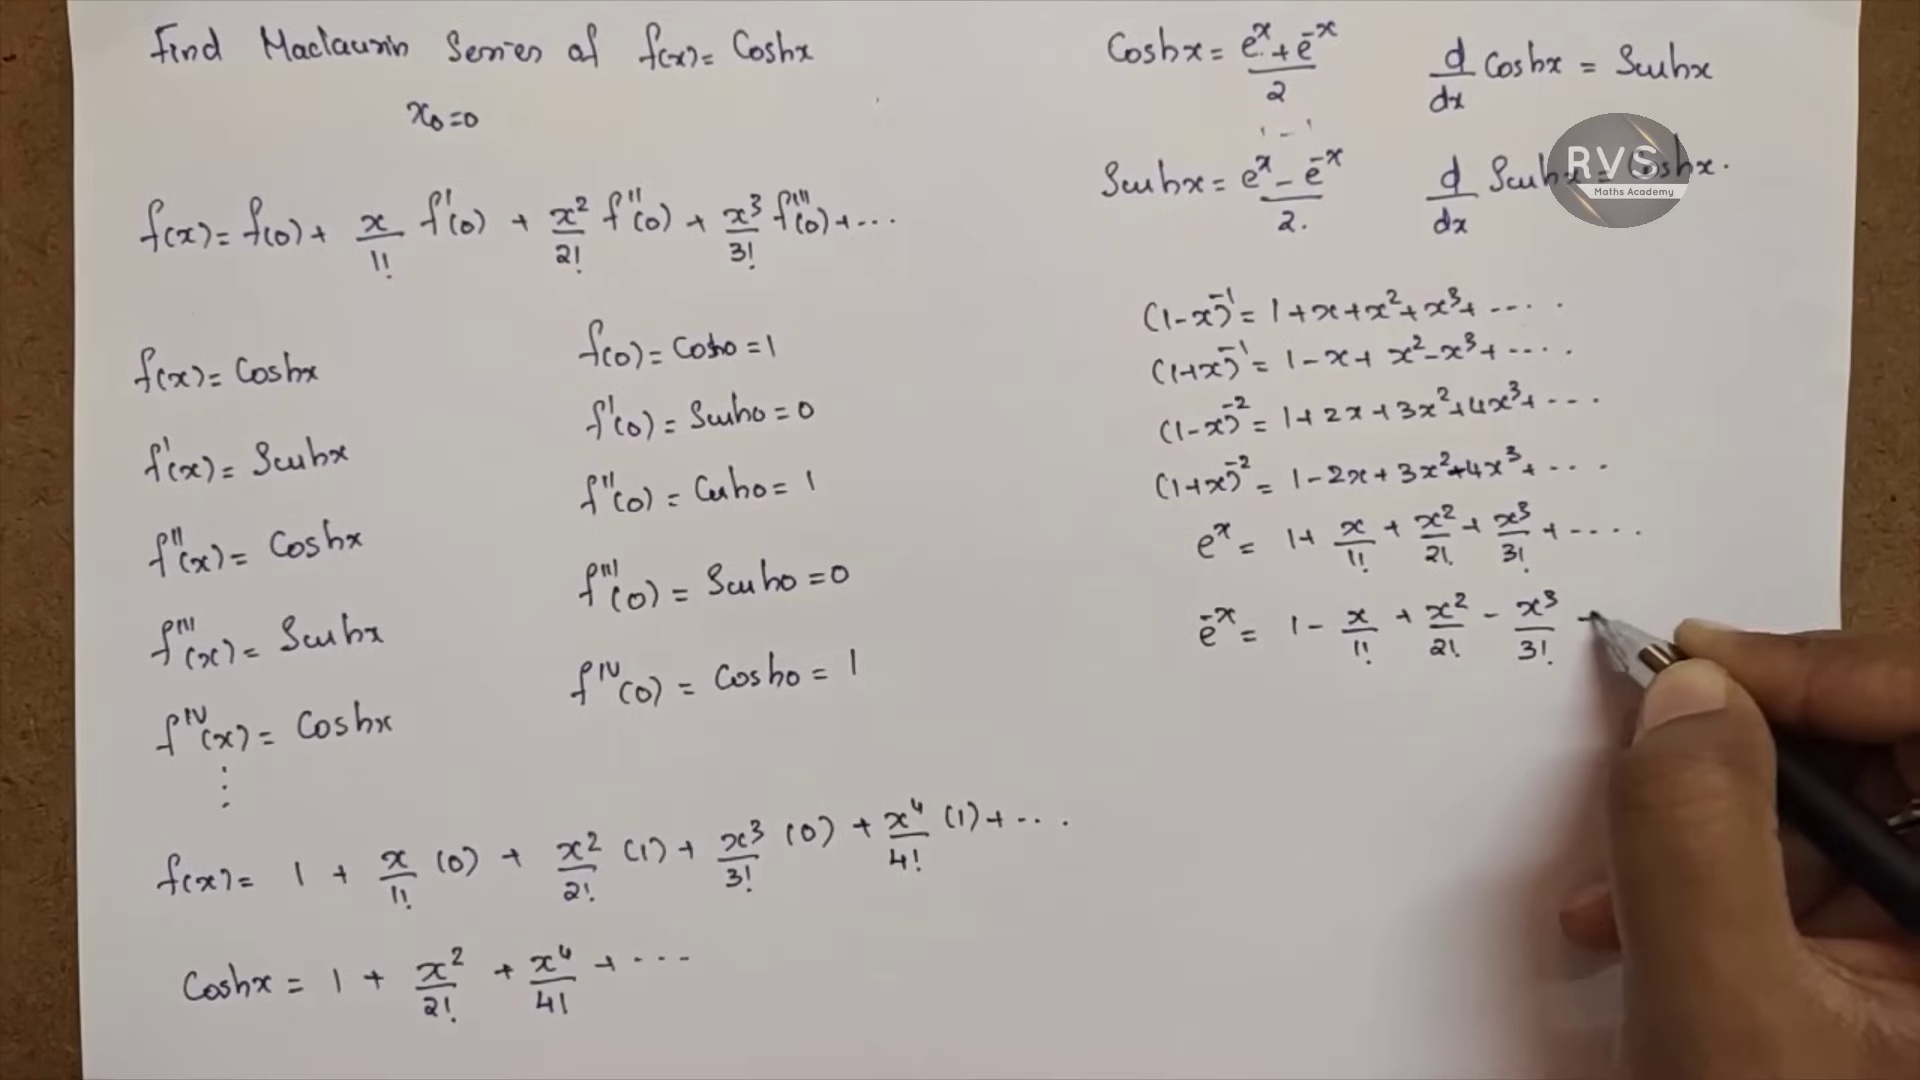 Find Maclaurin Series of f(x) = Coshx
x₀=0
f(x) = f(0) + x/1! f'(0) + x²/2! f''(0) + x³/3! f'''(0) + ...
f(x) = Coshx
f(0) = Cosh0 = 1
f'(x) = Sinhx
f'(0) = Sinh0 = 0
f''(x) = Coshx
f''(0) = Cosh0 = 1
f'''(x) = Sinhx
f'''(0) = Sinh0 = 0
f^IV(x) = Coshx
f^IV(0) = Cosh0 = 1
⋮
f(x) = 1 + x/1! (0) + x²/2! (1) + x³/3! (0) + x⁴/4! (1) + ...
Coshx = 1 + x²/2! + x⁴/4! + ...
Coshx = (e^x + e^-x)/2
d/dx Coshx = Sinhx
Sinhx = (e^x - e^-x)/2.
d/dx Sinhx = Coshx.
RVS
Maths Academy
(1-x)^-1 = 1+x+x²+x³+ ....
(1+x)^-1 = 1-x+x²-x³+ ....
(1-x)^-2 = 1+2x+3x²+4x³+ ...
(1+x)^-2 = 1-2x+3x²-4x³+ ...
e^x = 1 + x/1! + x²/2! + x³/3! + ....
e^-x = 1 - x/1! + x²/2! - x³/3! -